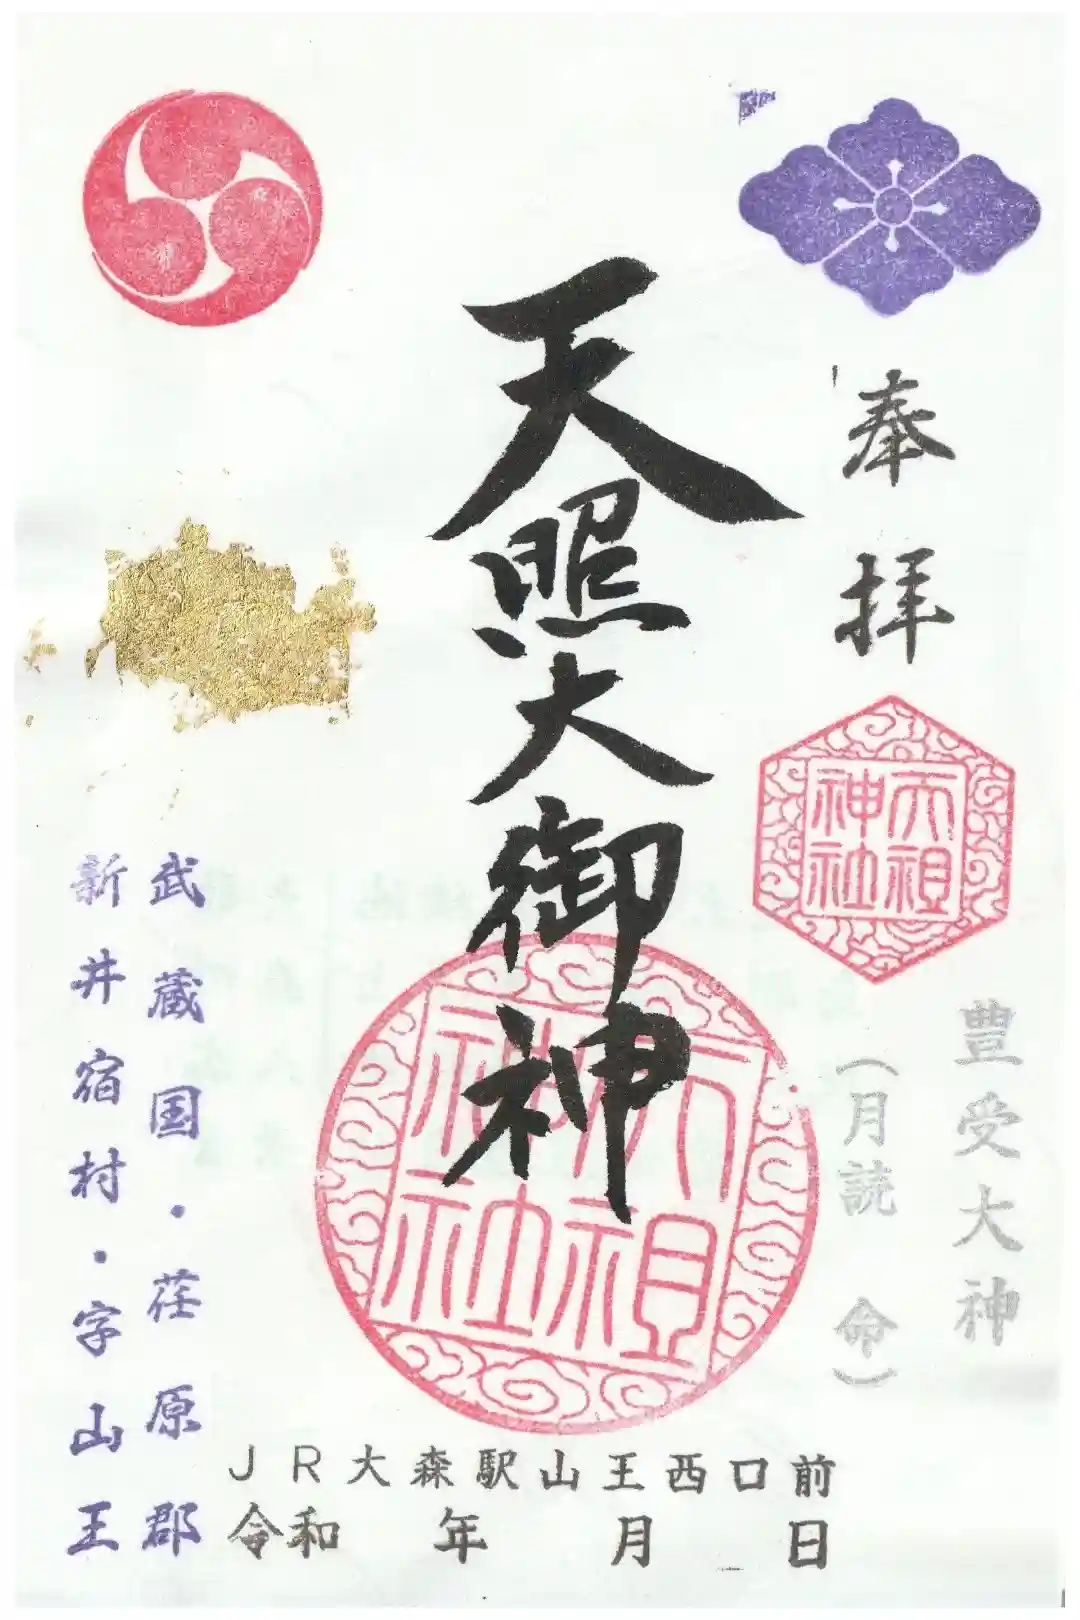 奉拝
天祖神社
豊受大神
(月読 命)
天照大御神
天祖神社
武蔵国・荏原郡
新井宿村・字山王
JR大森駅山王西口前
令和 年 月 日